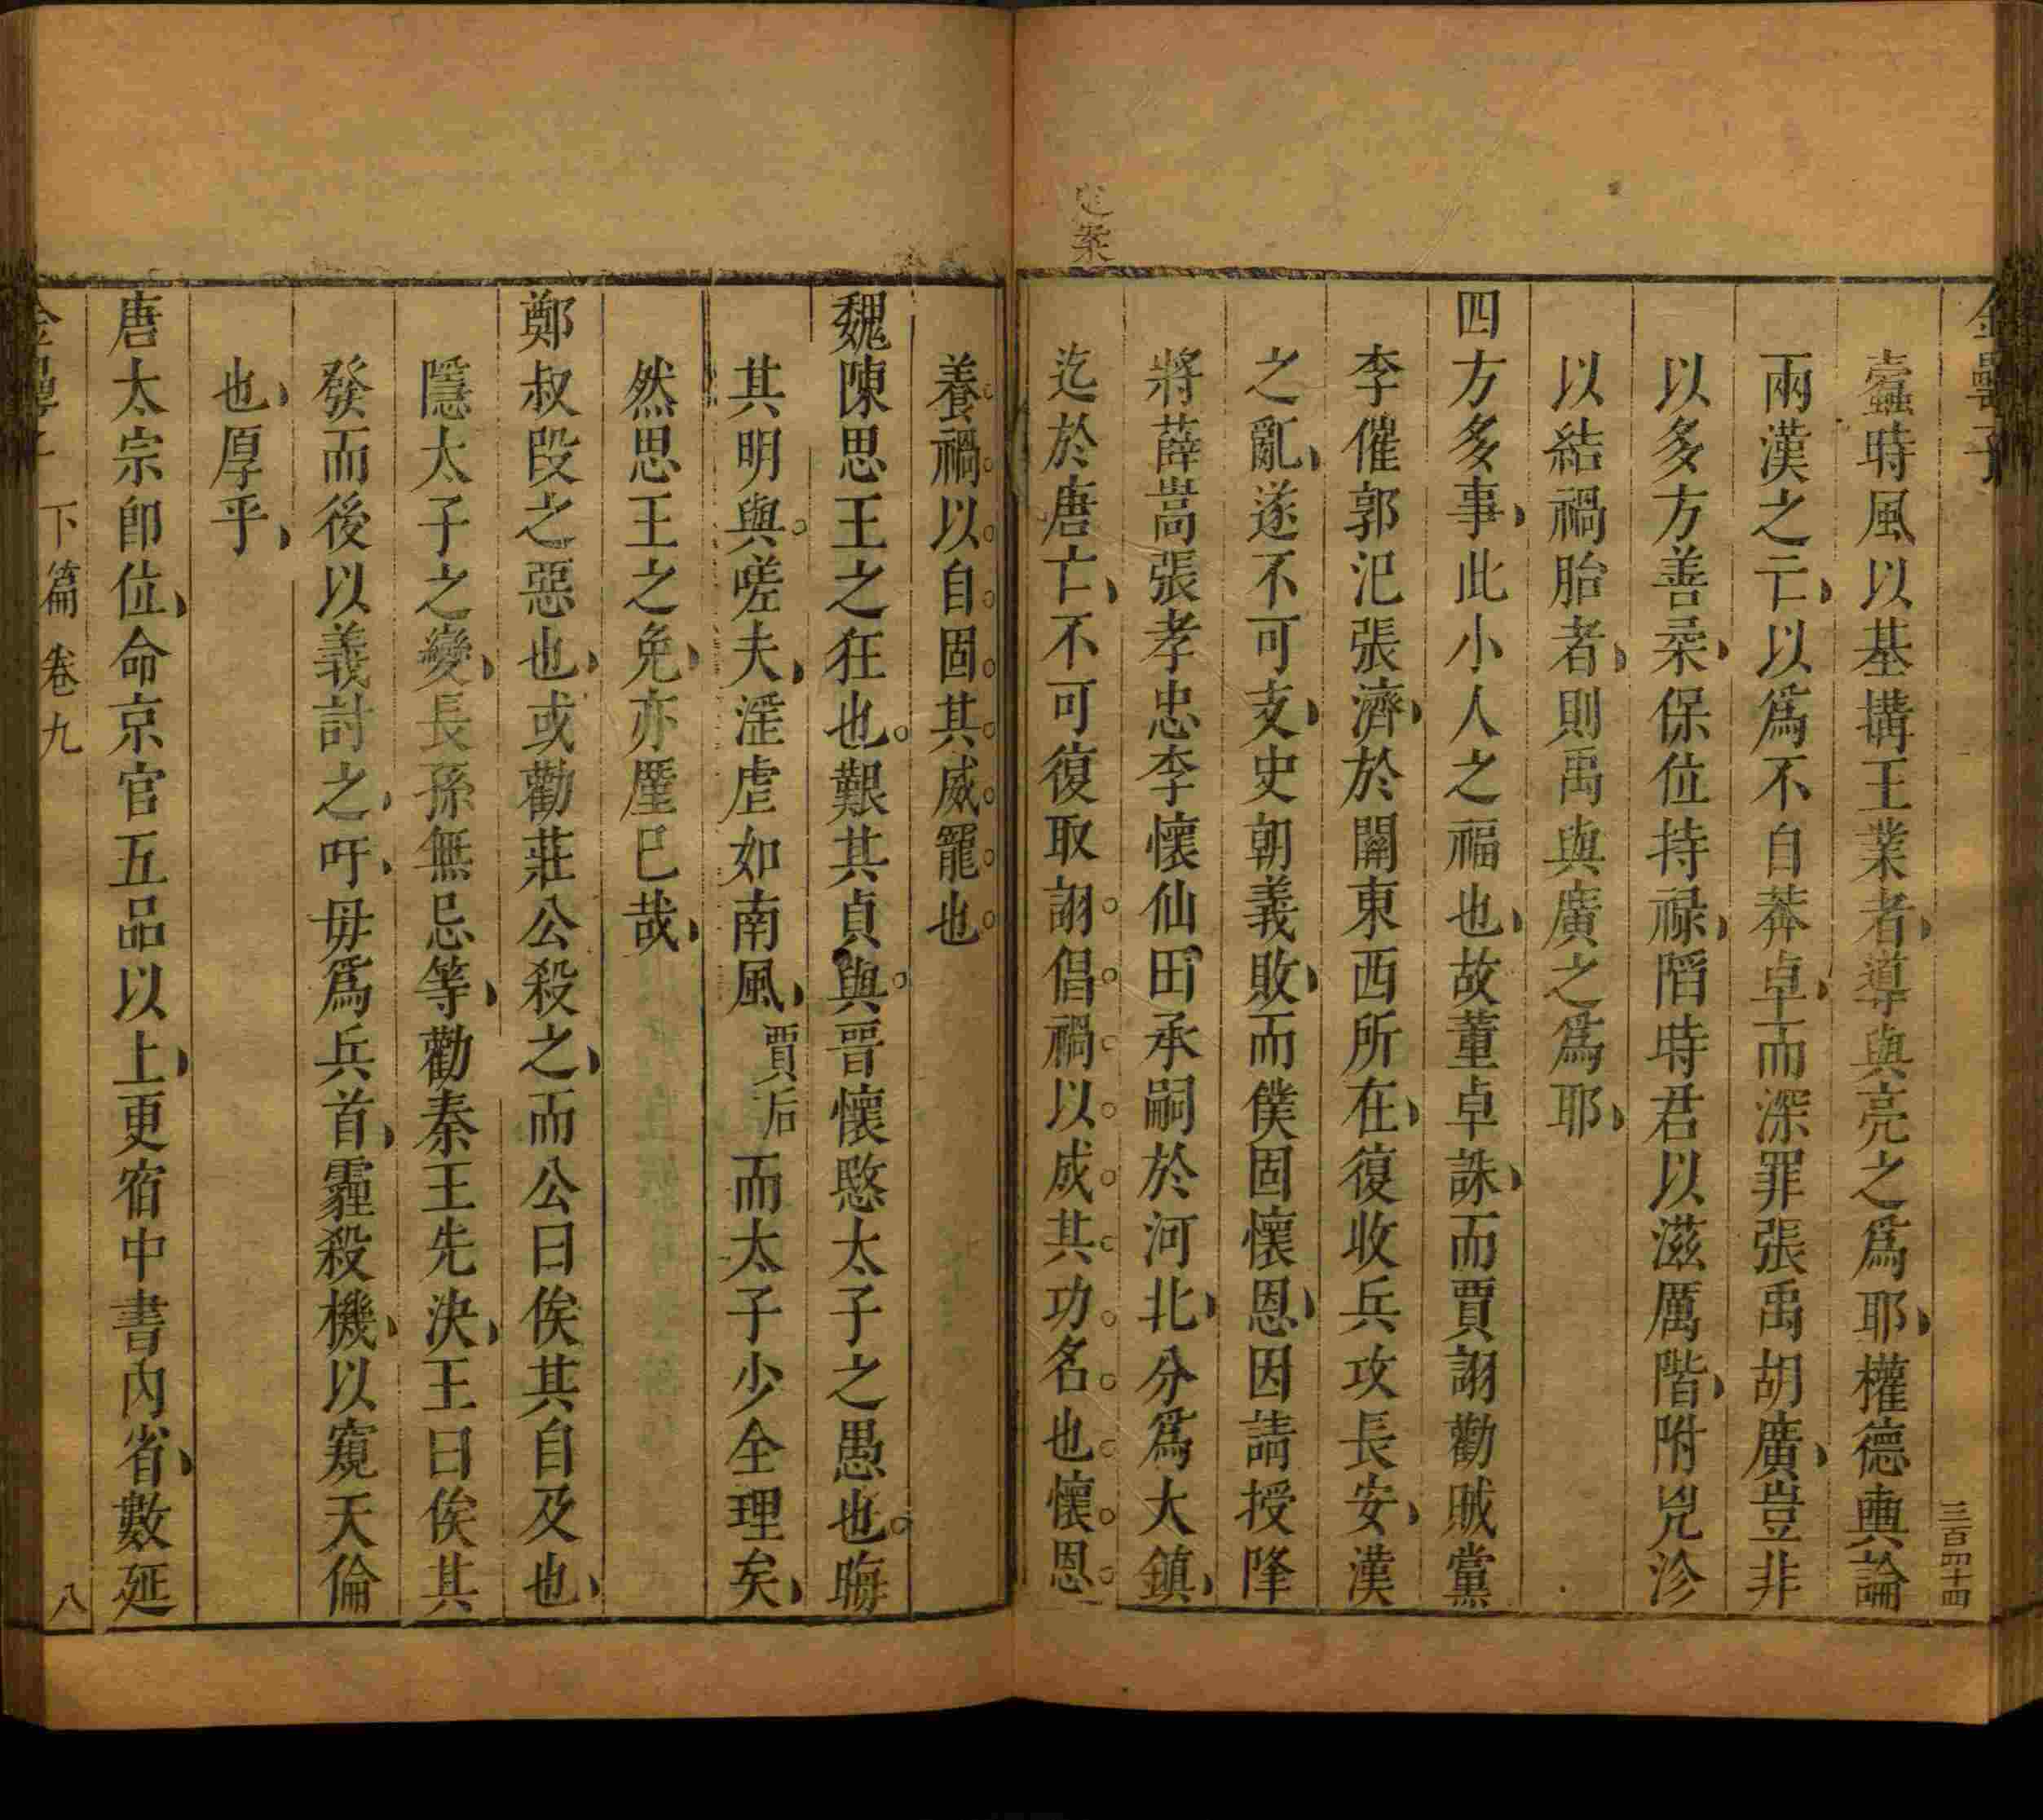 金罍子
三百四十四
蠹時風以基搆王業者導與亮之爲耶權德輿論
兩漢之亡以爲不自莽卓而深罪張禹胡廣豈非
以多方善柔保位持祿陷時君以滋厲階附兇沴
以結禍胎者則禹與廣之爲耶
四方多事此小人之福也故董卓誅而賈詡勸賊黨
李傕郭汜張濟於關東西所在復收兵攻長安漢
之亂遂不可支史朝義敗而僕固懷恩因請授降
將薛嵩張孝忠李懷仙田承嗣於河北分爲大鎮
迄於唐亡不可復取詡倡禍以成其功名也懷恩
定案
養禍以自固其威寵也
魏陳思王之狂也艱其貞與晉懷愍太子之愚也晦
其明與嗟夫淫虐如南風賈后而太子少全理矣
然思王之免亦厪已哉
鄭叔段之惡也或勸莊公殺之而公曰俟其自及也
隱太子之變長孫無忌等勸秦王先決王曰俟其
發而後以義討之吁毋爲兵首霾殺機以窺天倫
也厚乎
唐太宗卽位命京官五品以上更宿中書內省數延
金罍子 下篇卷九 八